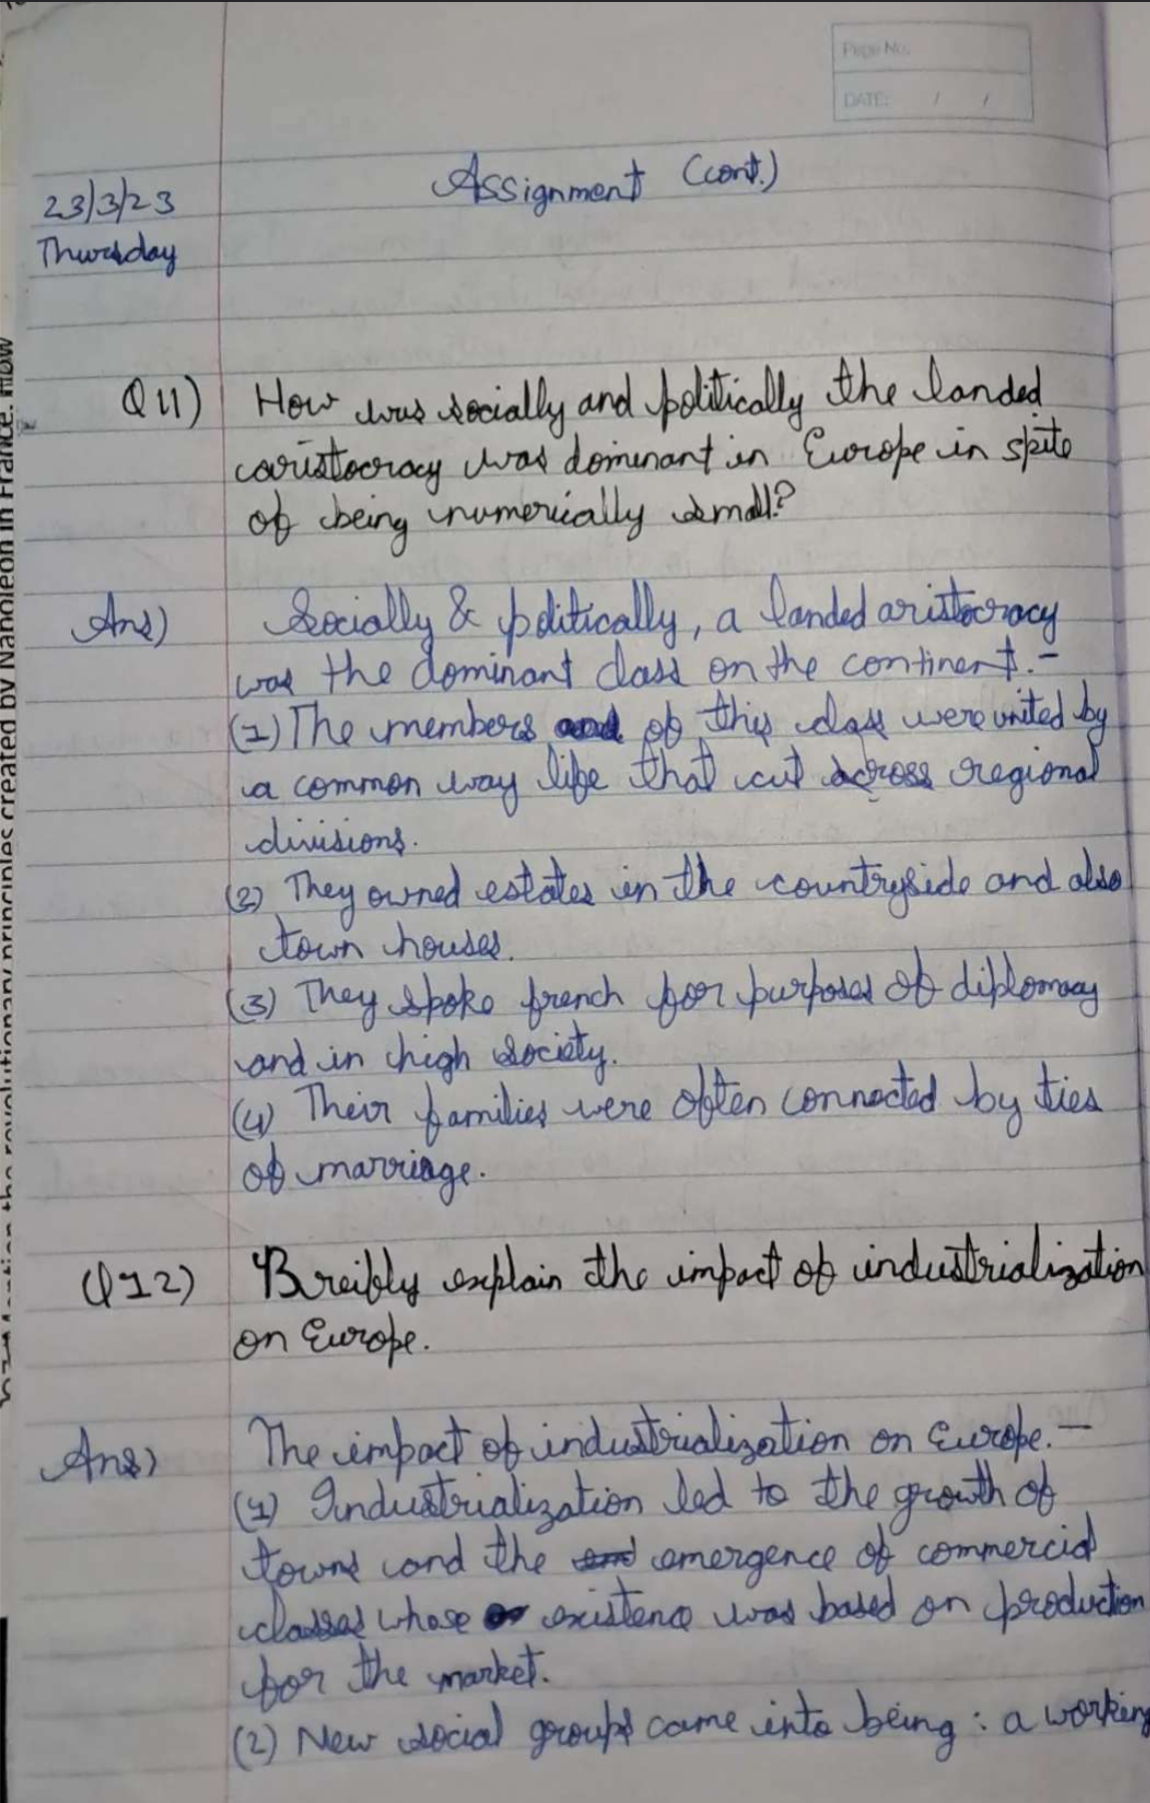 Page No.
DATE: / /
Assignment (cont.)
23/3/23
Thursday
Q11) How was socially and politically the landed
aristocracy was dominant in Europe in spite
of being numerically small?
Ans) Socially & politically, a landed aristocracy
was the dominant class on the continent.-
(1) The members of this class were united by
a common way life that cut across regional
divisions.
(2) They owned estates in the countryside and also
town houses.
(3) They spoke french for purposes of diplomacy
and in high society.
(4) Their families were often connected by ties
of marriage.
Q12) Breifly explain the impact of industrialization
on Europe.
Ans) The impact of industrialization on Europe.-
(1) Industrialization led to the growth of
towns and the emergence of commercial
classes whose existence was based on production
for the market.
(2) New social groups came into being : a working
the revolutionary principles created by Napoleon in France. How